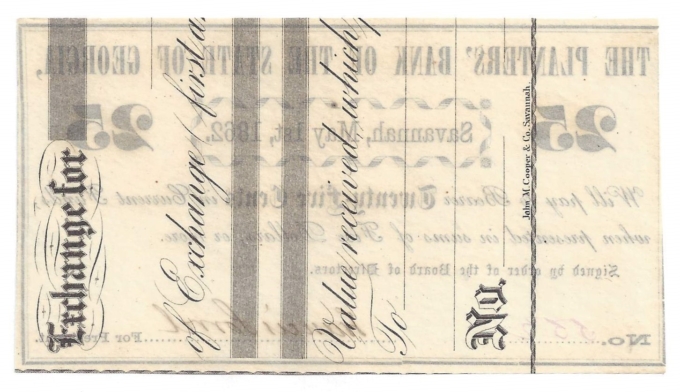 Exchange for
of Exchange (first
Value received which
To
No.
John M. Cooper & Co. Savannah.
THE PLANTERS' BANK OF THE STATE OF GEORGIA,
25 Savannah, May 1st, 1862. 25
Will pay Bearer Twenty Five Cents in Current Funds,
when presented in sums of Five Dollars or more.
Signed by order of the Board of Directors.
No. For Pres